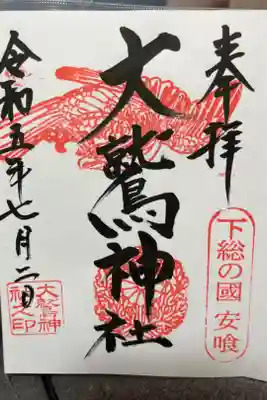 奉拝
下総の國 安喰
大鷲神社
令和五年七月二日
大鷲神
社之印